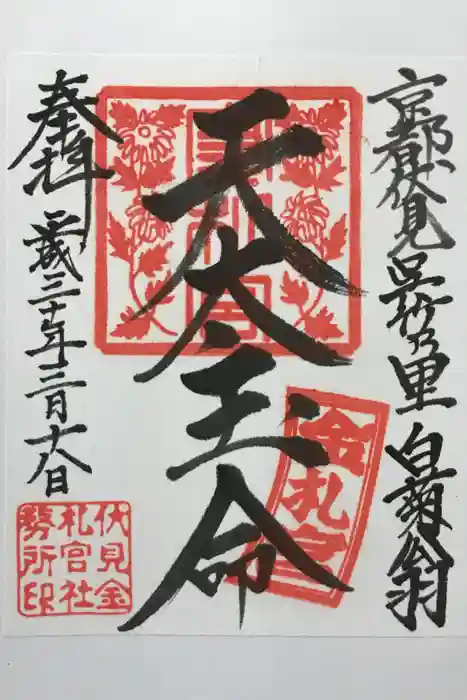 京都伏見 呉竹乃里 白菊翁
天太玉命
奉拝
平成三十年三月十八日
金札宮
伏見金
札宮社
務所印